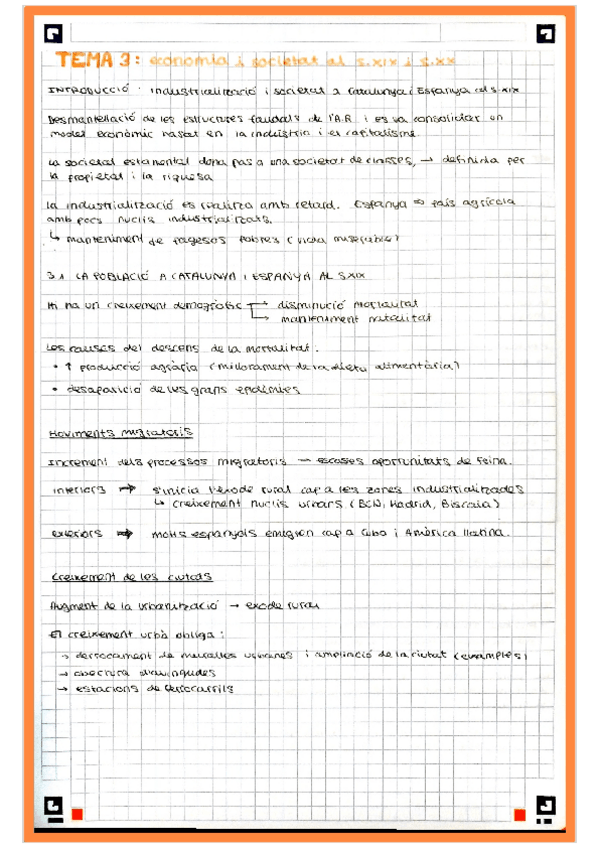 TEMA 3: economia i societat al s.XIX i s.XX
INTRODUCCIÓ: industrialització i societat a Catalunya i Espanya al s.XIX
Desmantellació de les estructures feudals de l'A.R i es va consolidar un
model econòmic basat en la indústria i el capitalisme.
La societat estamental dona pas a una societat de classes, → definida per
la propietat i la riquesa
La industrialització es realitza amb retard. Espanya ⇒ país agrícola
amb pocs nuclis industrialitzats.
↳ manteniment de pagesos pobres (vida miserable)
3.1 LA POBLACIÓ A CATALUNYA I ESPANYA AL S.XIX
Hi ha un creixement demogràfic → disminució mortalitat
→ manteniment natalitat
Les causes del descens de la mortalitat:
• ↑ producció agrària (millorament de la dieta alimentària)
• desaparició de les grans epidèmies
Moviments migratoris
Increment dels processos migratoris → escases oportunitats de feina.
interiors ⇒ s'inicia l'èxode rural cap a les zones industrialitzades
↳ creixement nuclis urbans (BCN, Madrid, Biscaia)
exteriors ⇒ molts espanyols emigren cap a Cuba i Amèrica llatina.
Creixement de les ciutats
Augment de la urbanització → exode rural
El creixement urbà obliga:
→ derrocament de muralles urbanes i ampliació de la ciutat (eixamples)
→ obertura d'avingudes
→ estacions de ferrocarrils